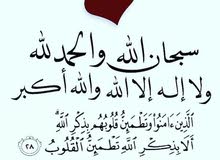 سبحان الله والحمد لله
ولا إله إلا الله والله أكبر
الَّذِينَ ءَامَنُوا وَتَطْمَئِنُّ قُلُوبُهُم بِذِكْرِ اللَّهِ
أَلَا بِذِكْرِ اللَّهِ تَطْمَئِنُّ الْقُلُوبُ ٢٨